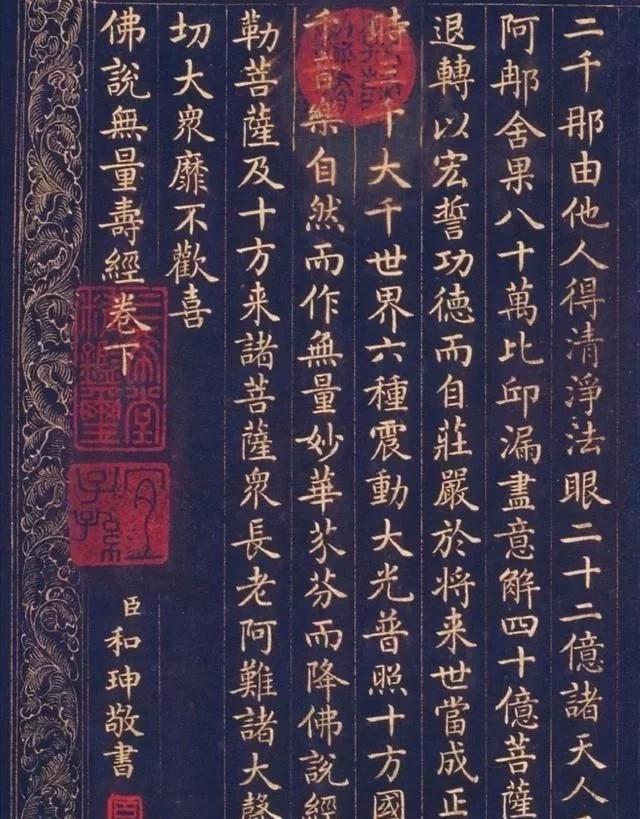 二千那由他人得清淨法眼二十二億諸天人
阿郍舍果八十萬比邱漏盡意解四十億菩薩
退轉以宏誓功德而自莊嚴於将来世當成正
時三千大千世界六種震動大光普照十方國
千音樂自然而作無量妙華芬芬而降佛說經
勒菩薩及十方来諸菩薩衆長老阿難諸大聲
切大衆靡不歡喜
佛說無量壽經卷下
三希堂精鑑璽
宜子孫
臣和珅敬書